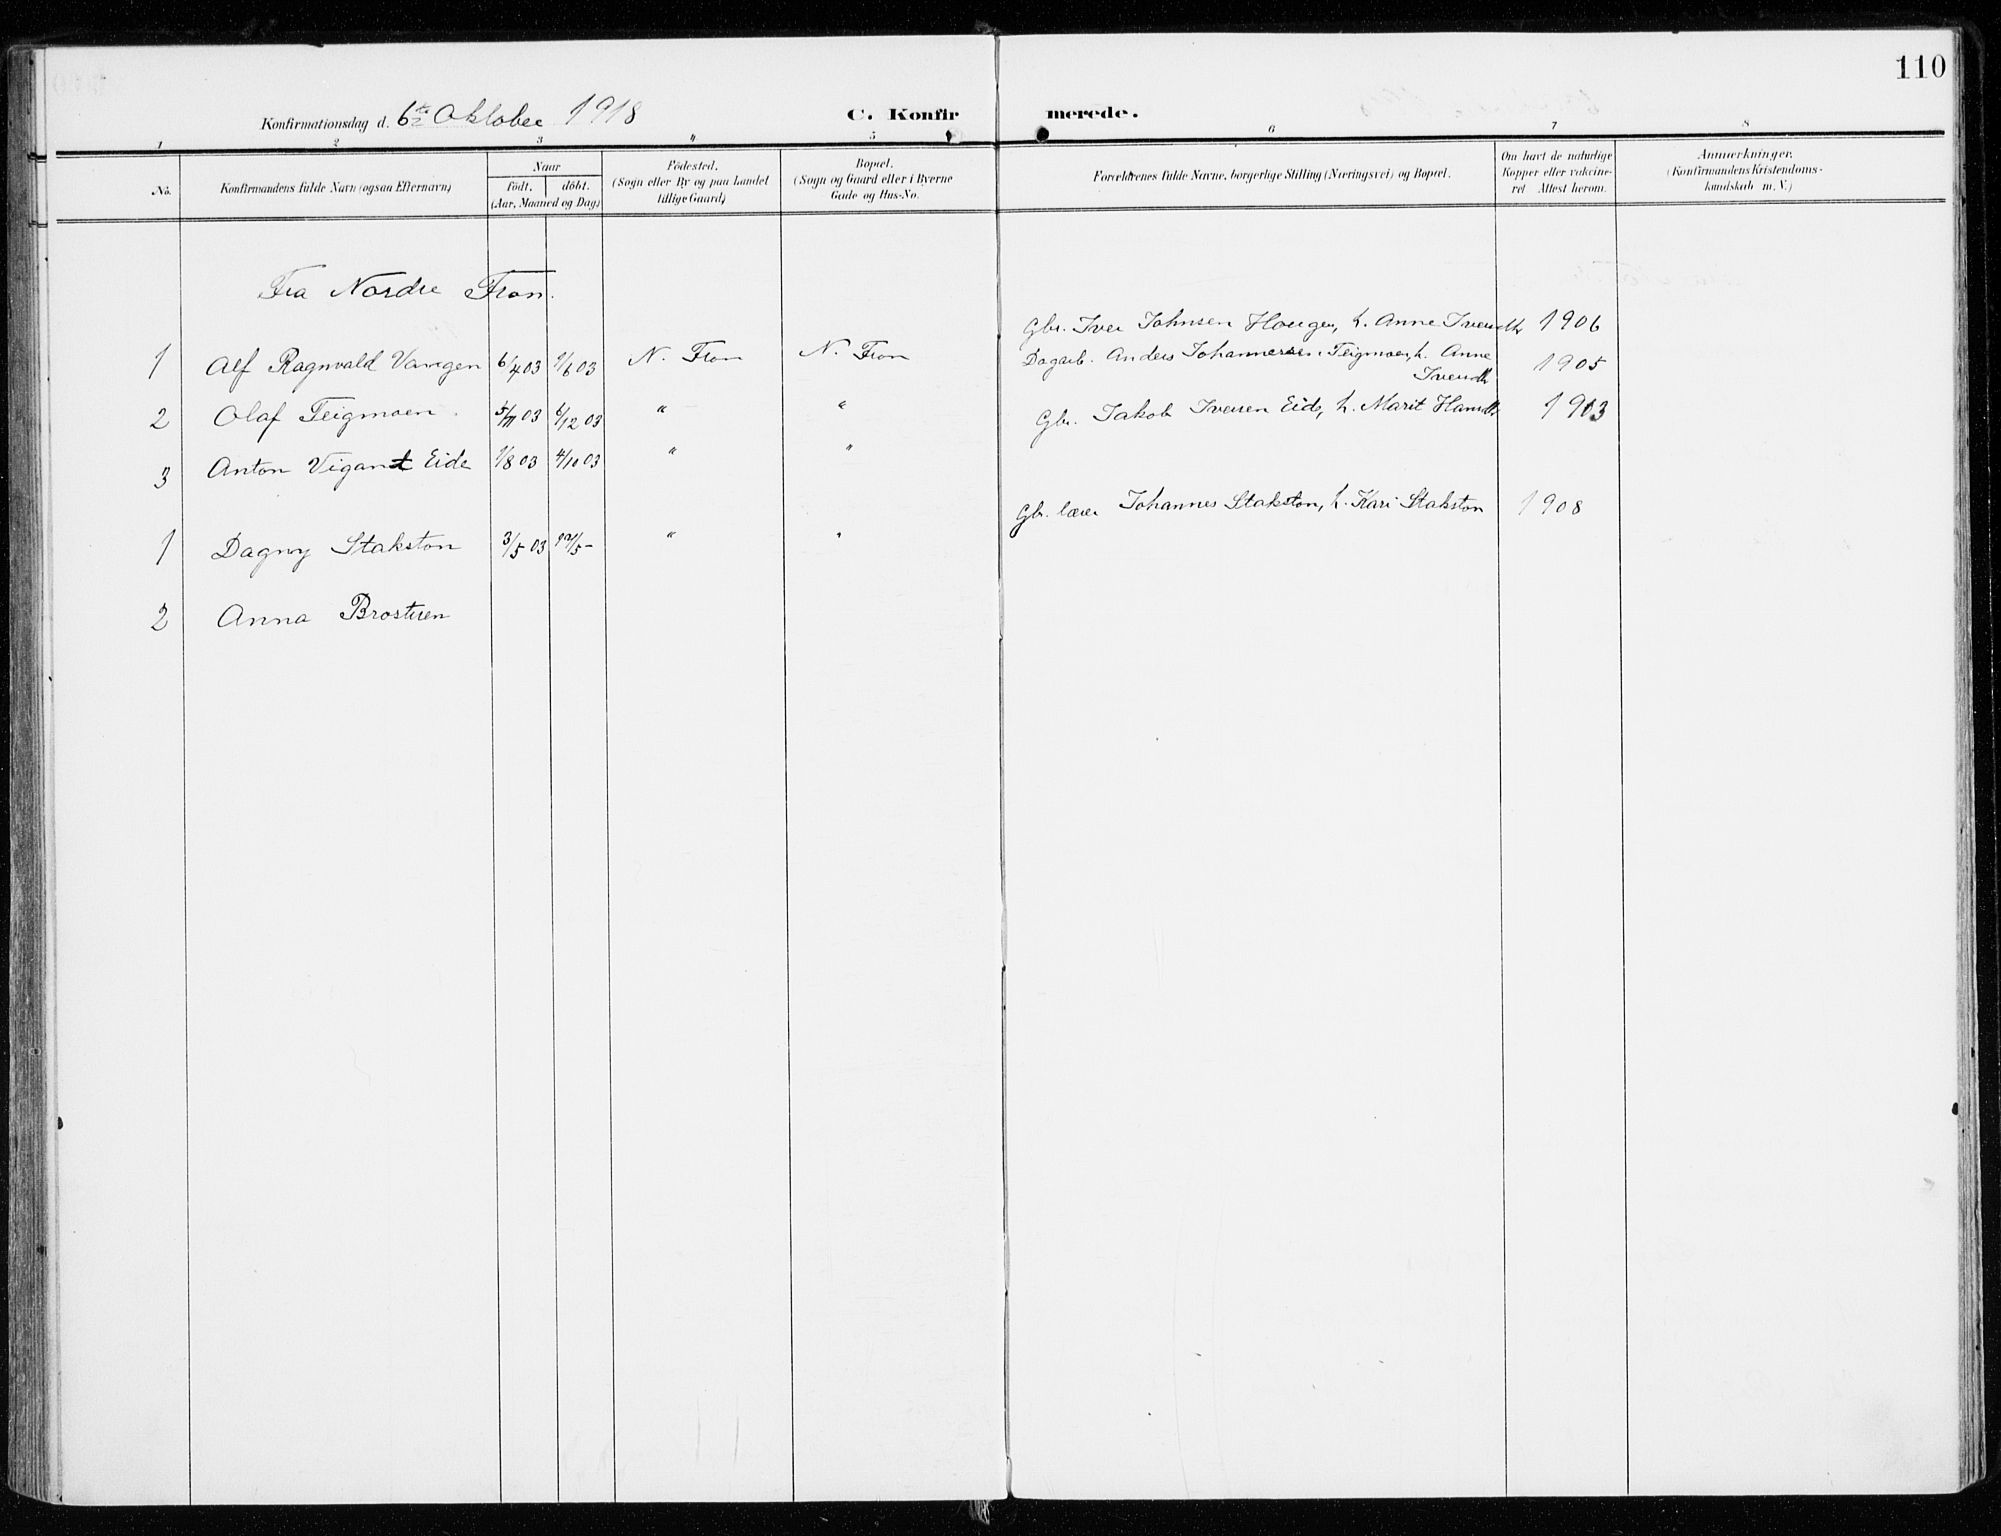 110
Konfirmationsdag d. 6te Oktober 1918 C. Konfirmerede.
1 2 3 4 5 6 7 8
No. Konfirmandens fulde Navn (ogsaa Efternavn) Naar født. døbt. (Aar, Maaned og Dag) Fødested. (Sogn eller By og paa Landet tillige Gaard) Bopæl. (Sogn og Gaard eller i Byerne Gade og Hus-No. Forældrenes fulde Navne, borgerlige Stilling (Næringsvei) og Bopæl. Om havt de naturlige Kopper eller vaksineret Attest herom. Anmærkninger. (Konfirmandens Kristendomskundskab m. V.)
Fra Nordre Fron.
1 Alf Ragnvald Vangen 6/4 03 1/6 03 N. Fron N. Fron Gbr. Iver Johnsen Haugen, h. Anne Iversdtr 1906
2 Olaf Teigmoen. 5/11 03 6/12 03 " " Dagarb. Anders Johannessen Teigmoen, h. Anne Iversdtr 1905
3 Anton Vigant Eide 1/8 03 4/10 03 " " Gbr. Jakob Iversen Eide, h. Marit Hansdtr 1913
1 Dagny Stakston 3/5 03 /5 - " " Gbr. lærer Johannes Stakston, h. Kari Stakston 1908
2 Anna Brostuen